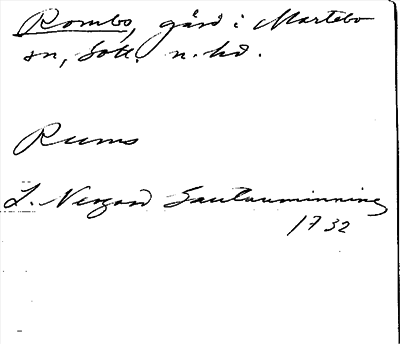 Rombs, gård i Martebo
sn, Gotl. n. hd.
Rums
L. Nergard
1732